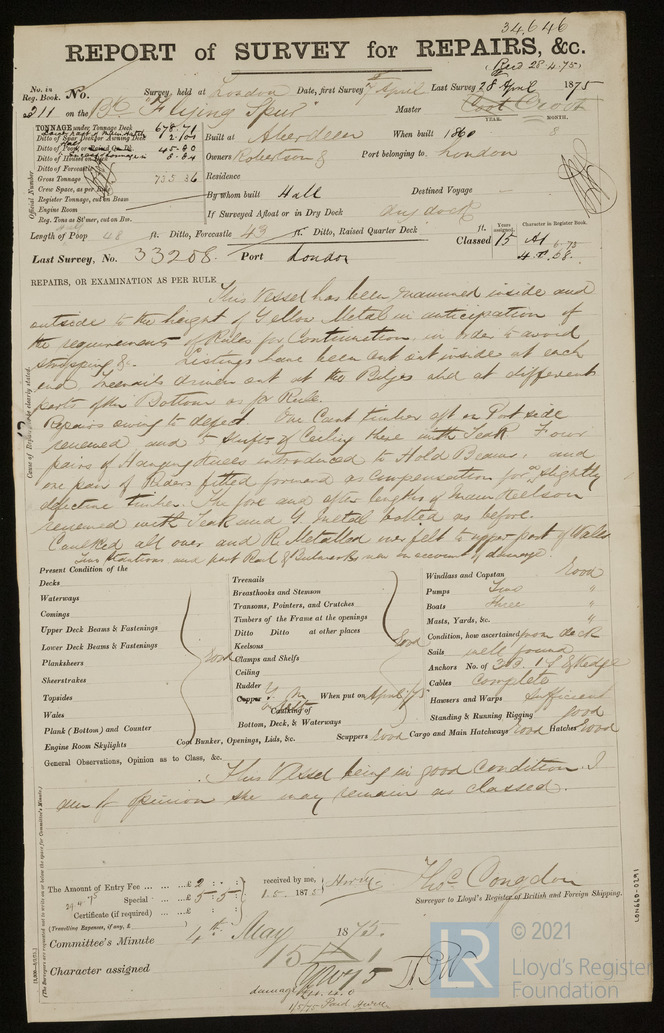 34646
REPORT of SURVEY for REPAIRS, &c.
Recd 28.4.75
No. in Reg. Book. No. Survey, held at London Date, first Survey 7 April Last Survey 28 April 1875
211 on the Bk "Flying Spur" Master
TONNAGE under Tonnage Deck 678.71
Ditto of Spar Deck or Awning Deck
Ditto of Poop
Ditto of Houses on Deck
Ditto of Forecastle
Gross Tonnage 735.86
Crew Space, as per Rule
Register Tonnage, cut on Beam
Engine Room
Reg. Tons as St'mer, cut on Bm.
Official Number
YEAR. MONTH.
Built at Aberdeen When built 1860 8
Owners Robertson & Port belonging to London
Residence
By whom built Hall Destined Voyage —
If Surveyed Afloat or in Dry Dock dry dock
Length of Poop 48 ft. Ditto, Forecastle 43 ft. Ditto, Raised Quarter Deck ft.
Years assigned. Character in Register Book.
Classed 15 A1 6-73
Last Survey, No. 33208. Port London
REPAIRS, OR EXAMINATION AS PER RULE
This Vessel has been examined inside and
outside to the height of Yellow Metal in anticipation of
the requirements of Rules for Continuation, in order to avoid
stripping &c. Listings have been cut out inside at each
end, treenails driven out at the Bilges and at different
parts of the Bottom as per Rule.
Repairs owing to defect. One Cant timber aft on Port side
renewed and to shifts of Ceiling there with Teak Four
pairs of Hanging Knees introduced to Hold Beams, and
one pair of Riders fitted forward as compensation for a slightly
defective timber. The fore and after lengths of main Keelson
renewed with Teak and Y. Metal bolted as before.
Caulked all over and R. Metalled over felt to upper part of Wales
stantions and part Rail & Bulwarks new on account of damage.
Cause of Repairs to be clearly stated.
Present Condition of the
Decks
Waterways
Comings
Upper Deck Beams & Fastenings
Lower Deck Beams & Fastenings
Planksheers
Sheerstrakes
Topsides
Wales
Plank (Bottom) and Counter
Engine Room Skylights
Good
Treenails
Breasthooks and Stemson
Transoms, Pointers, and Crutches
Timbers of the Frame at the openings
Ditto Ditto at other places
Keelsons
Clamps and Shelfs
Ceiling
Rudder
Copper Y. M. on felt When put on April /75
Caulking of
Bottom, Deck, & Waterways
Good
Coal Bunker, Openings, Lids, &c. Scuppers Good Cargo and Main Hatchways Good Hatches Good
Windlass and Capstan Good
Pumps Two "
Boats three "
Masts, Yards, &c. "
Condition, how ascertained from deck
Sails well found
Anchors No. of 3 B. 1 S & Kedge
Cables Complete
Hawsers and Warps Sufficient
Standing & Running Rigging good
General Observations, Opinion as to Class, &c.
This Vessel being in good Condition I
am of opinion she may remain as classed.
The Amount of Entry Fee ... ... £ 2 : :
Special ... £ 5 : 5 :
Certificate (if required) ... £ : :
(Travelling Expenses, if any, £ )
29.4.75
received by me,
1.5. 1875
Thos. Congdon
Surveyor to Lloyd's Register of British and Foreign Shipping.
Committee's Minute 4th May 1875.
Character assigned 15 A 1
damage
1/5/75 Paid
LON660-0291
LR
© 2021
Lloyd's Register
Foundation